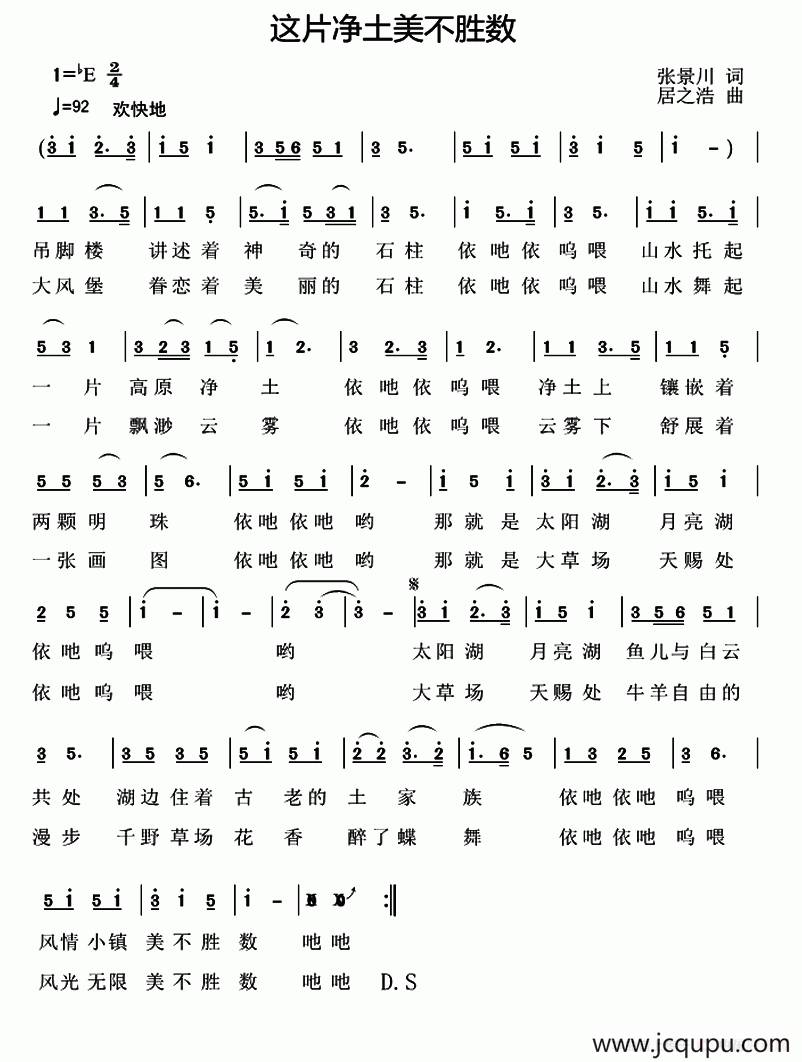 这片净土美不胜数
1=♭E 2/4
张景川 词
♩=92 欢快地
居之浩 曲
(3 1 2. 3 | 1 5 1 | 3 5 6 5 1 | 3 5. | 5 1 5 1 | 3 1 5 | 1 - ) |
1 1 3. 5 | 1 1 5 | 5. 1 5 3 1 | 3 5. | 1 5. 1 | 3 5. | 1 1 2. 1 |
吊脚楼 讲述着 神 奇的 石柱 依吔依 呜喂 山水托起
大风堡 眷恋着 美 丽的 石柱 依吔依 呜喂 山水舞起
5 3 1 | 3 2 3 1 5 | 1 2. | 3 2. 3 | 1 2. | 1 1 3. 5 | 1 1 5 |
一 片 高原 净 土 依 吔依 呜喂 净土上 镶嵌着
一 片 飘渺 云 雾 依 吔依 呜喂 云雾下 舒展着
5 5 5 3 | 5 6. | 5 1 5 1 | 2 - | 1 5 1 | 3 1 2. 3 | 1 5 1 |
两颗明 珠 依吔依吔 哟 那就是 太阳湖 月亮湖
一张画 图 依吔依吔 哟 那就是 大草场 天赐处
2 5 5 | 1 - | 1 - | 2 3 | 3 - | 3 1 2. 3 | 1 5 1 | 3 5 6 5 1 |
依 吔 呜 喂 哟 太阳湖 月亮湖 鱼儿与 白云
依 吔 呜 喂 哟 大草场 天赐处 牛羊自由的
3 5. | 3 5 3 5 | 5 1 5 1 | 2 2 3. 2 | 1. 6 5 | 1 3 2 5 | 3 6. |
共处 湖边住着 古 老的 土 家 族 依吔依吔 呜喂
漫步 千野草场 花 香 醉了蝶 舞 依吔依吔 呜喂
5 1 5 1 | 3 1 5 | 1 - | X X :‖
风情小镇 美不胜 数 吔吔
风光无限 美不胜 数 吔吔 D.S
www.jcqupu.com